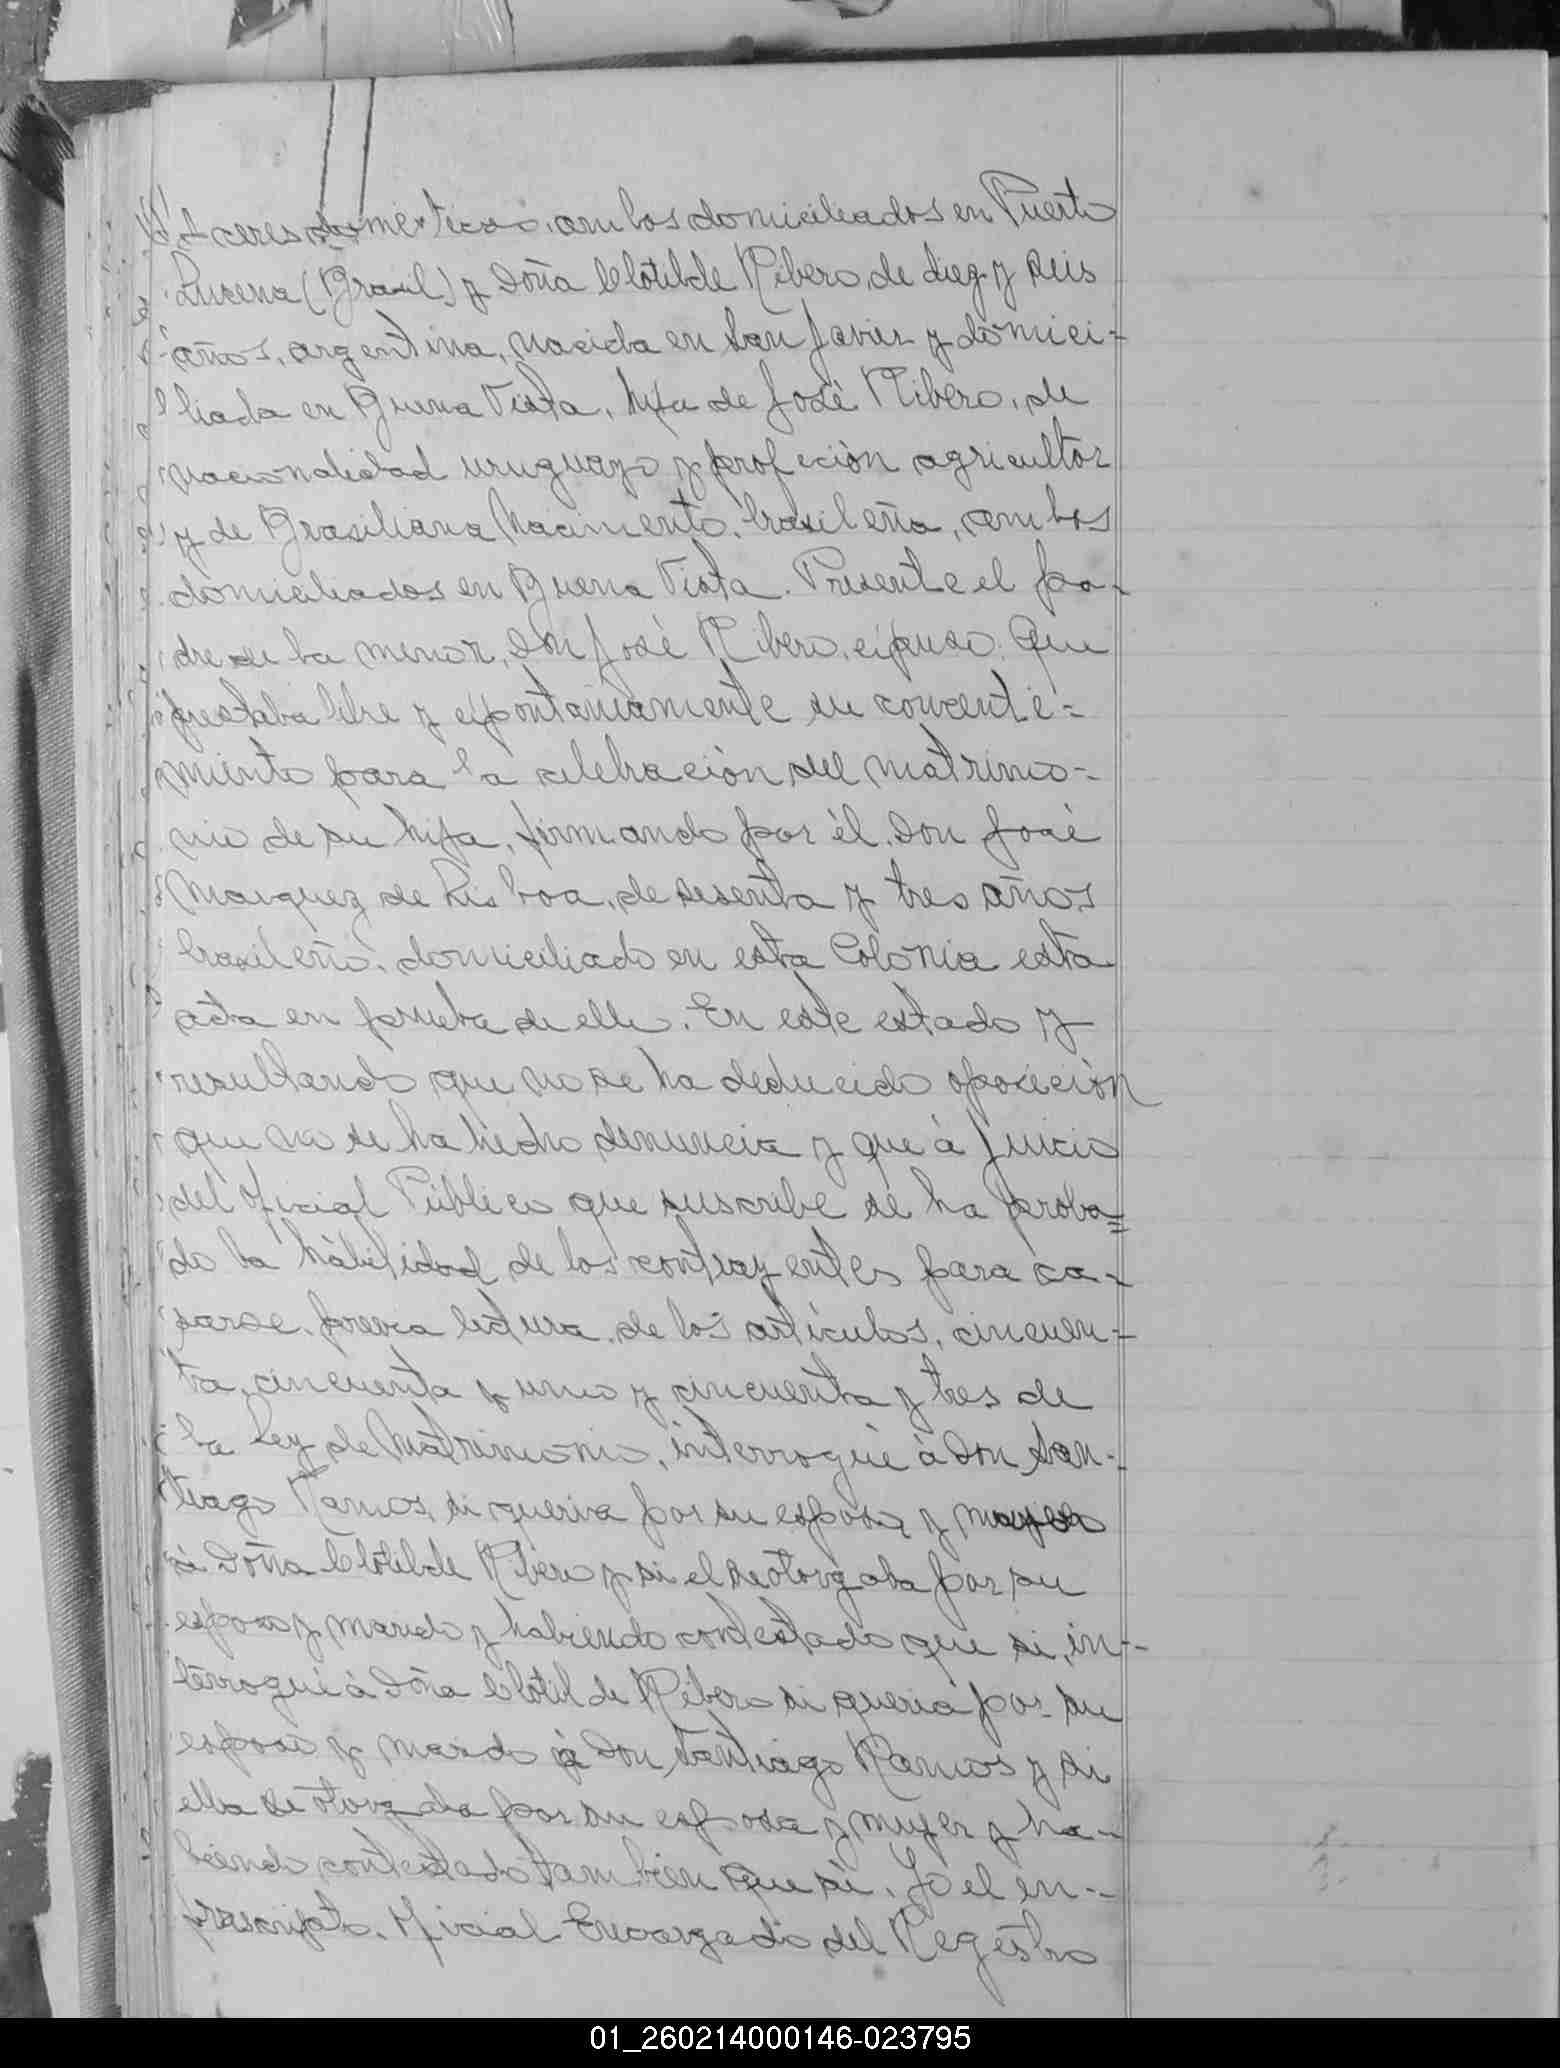 aceres domésticos, ambos domiciliados en Puerto
Lucena (Brasil) y Doña Clotilde Ribero, de diez y seis
años, argentina, nacida en San Javier y domici=
liada en Buena Vista, hija de José Ribero, de
nacionalidad uruguayo y profeción agricultor
y de Brasiliana Nacimento, brasileña, ambos
domiciliados en Buena Vista. Presente el pa-
dre de la menor, Don José Ribero, expuso: Que
prestaba libre y espontaniamente su concenti=
miento para la celebración del matrimo=
nio de su hija, firmando por él, Don José
Marquez de Lisboa, de sesenta y tres años
brasileño, domiciliado en esta Colonia esta
acta en prueba de ello. En este estado y
resultando que no se ha deducido oposición
que no se ha hecho denuncia y que à juicio
del Oficial Público que suscribe se ha proba=
do la habilidad de los contrayentes para ca-
sarse, previa lectura de los artículos, cincuen-
ta, cincuenta y uno y cincuenta y tres de
la Ley de Matrimonio, interrogué à Don San-
tiago Ramos, si queria por su esposa y mujer
à Doña Clotilde Ribero y si el se otorgaba por su
esposo y marido y habiendo contestado que si, in-
terrogué à Doña Clotilde Ribero si queria por su
esposo y marido à Don Santiago Ramos y si
ella se otorgaba por su esposa y mujer y ha-
biendo contestado tambien que si, Yo el in-
frascripto, Oficial Encargado del Registro
01_260214000146-023795